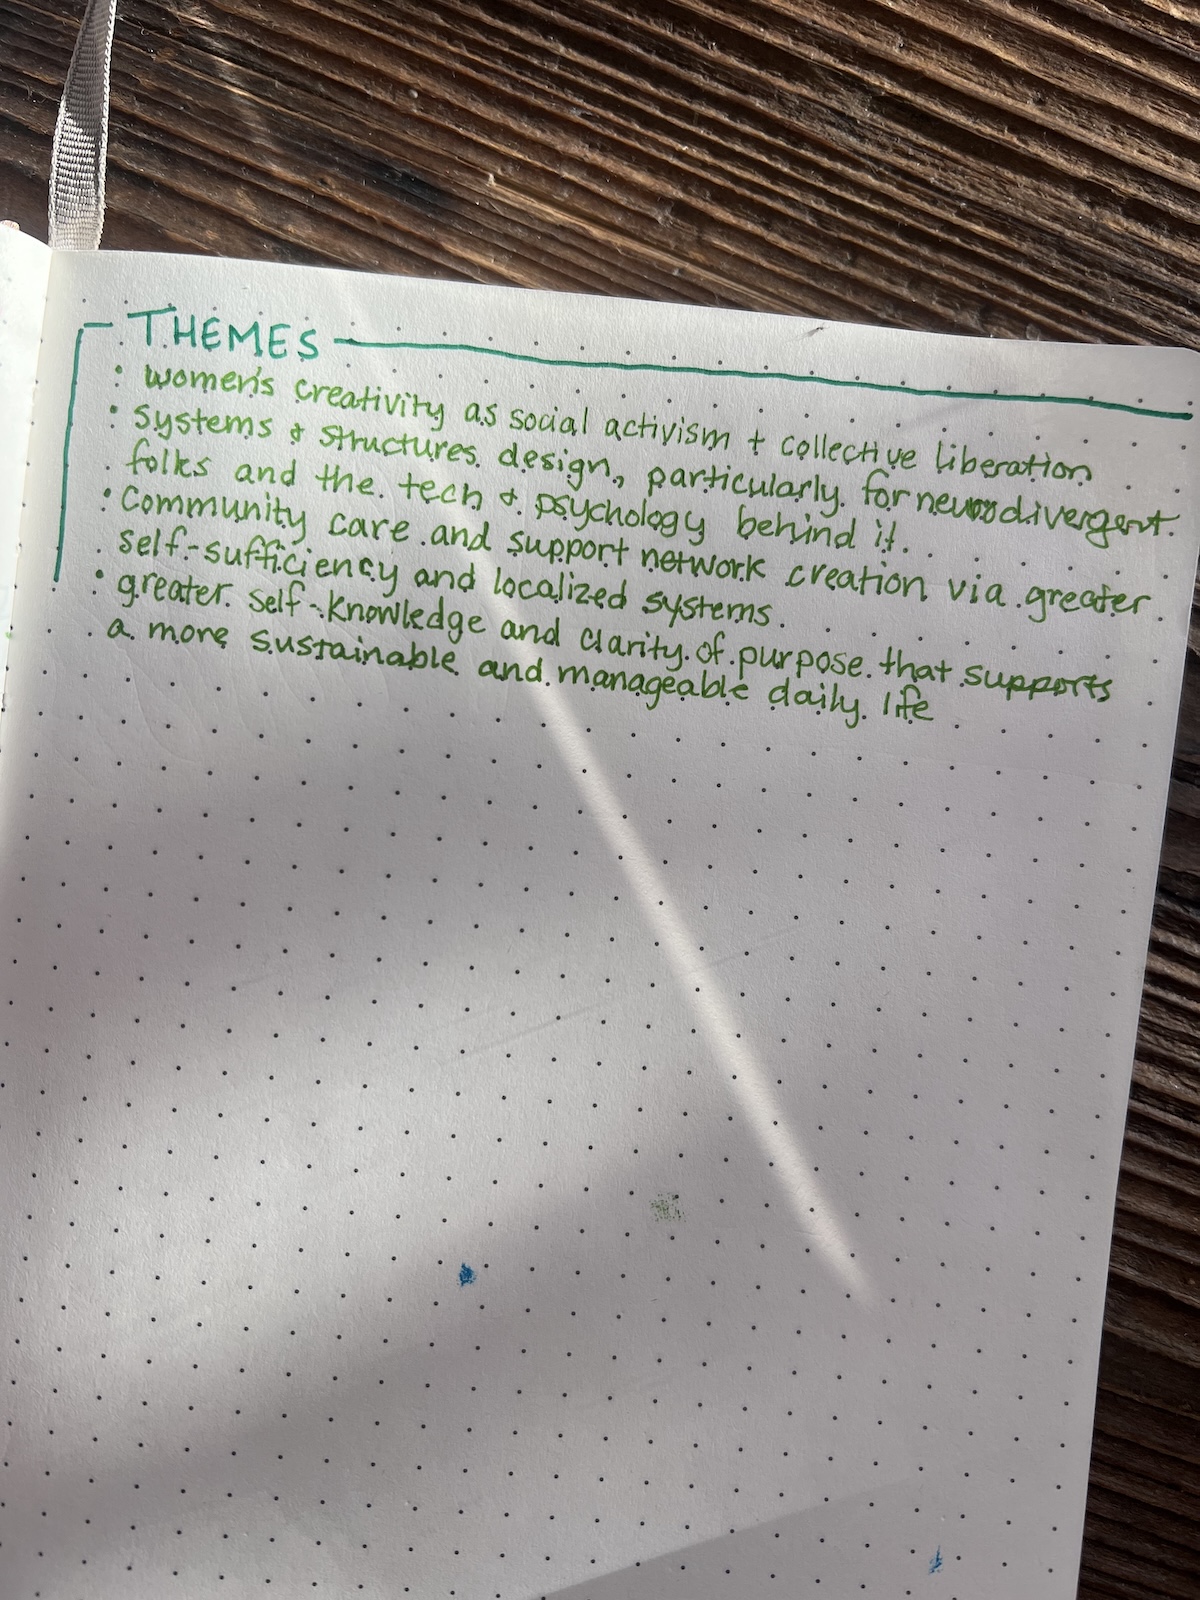 THEMES
• women's creativity as social activism + collective liberation
• systems & structures design, particularly for neurodivergent
folks and the tech & psychology behind it.
• Community care and support network creation via greater
self-sufficiency and localized systems.
• greater self-knowledge and clarity of purpose that supports
a more sustainable and manageable daily life